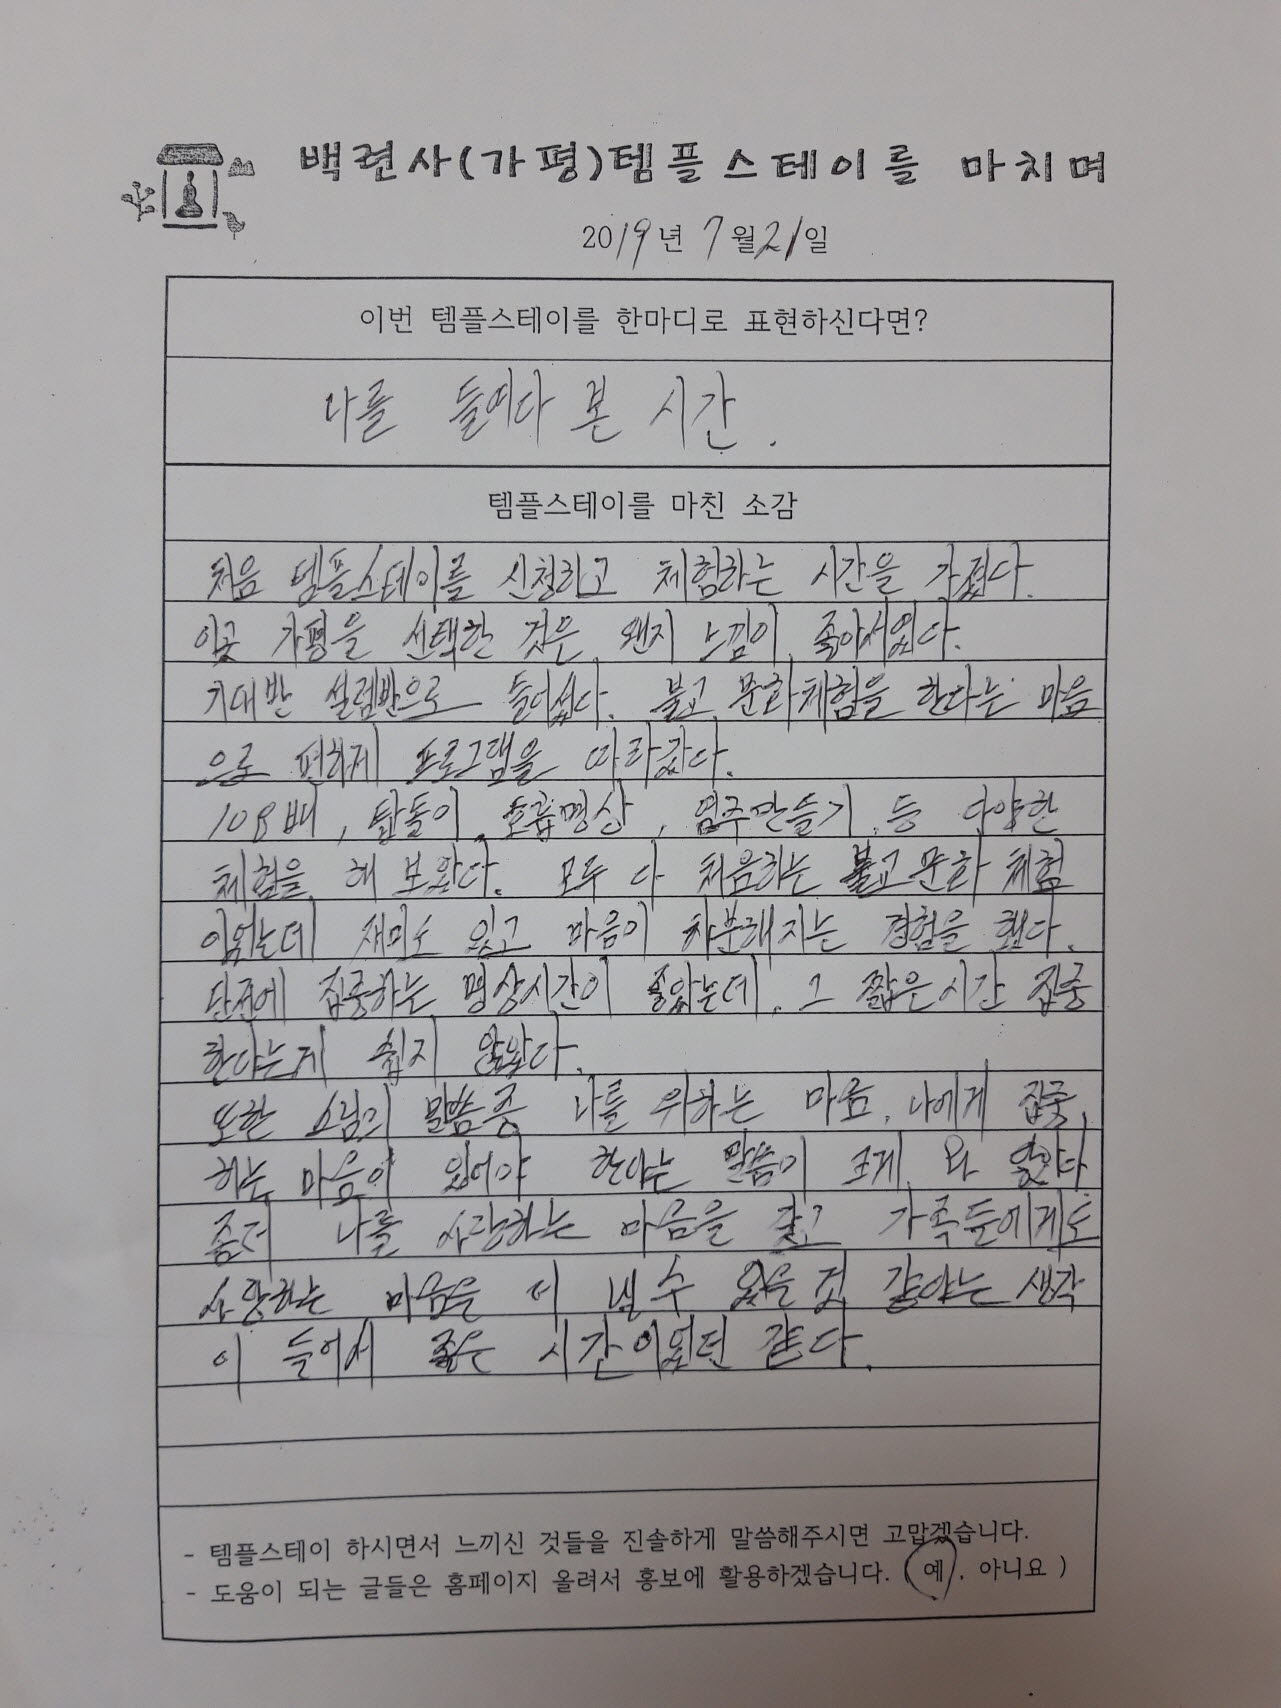 백련사(가평)템플스테이를 마치며
2019년 7월21일
이번 템플스테이를 한마디로 표현하신다면?
나를 들여다 본 시간.
템플스테이를 마친 소감
처음 템플스테이를 신청하고 체험하는 시간을 가졌다.
이곳 가평을 선택한 것은 왠지 느낌이 좋아서였다.
기대반 설렘반으로 들어섰다. 불교 문화체험을 한다는 마음
으로 편하게 프로그램을 따라갔다.
108배, 탑돌이, 호흡명상, 염주만들기, 등 다양한
체험을 해 보았다. 모두 다 처음하는 불교문화 체험
이었는데 재미도 있고 마음이 차분해지는 경험을 했다.
단전에 집중하는 명상시간이 좋았는데, 그 짧은 시간 집중
한다는게 쉽지 않았다.
또한 스님의 말씀중 나를 위하는 마음, 나에게 집중
하는 마음이 있어야 한다는 말씀이 크게 와 닿았다
좀더 나를 사랑하는 마음을 갖고 가족들에게도
사랑하는 마음을 더 낼 수 있을 것 같다는 생각
이 들어서 좋은 시간이었던 같다.
- 템플스테이 하시면서 느끼신 것들을 진솔하게 말씀해주시면 고맙겠습니다.
- 도움이 되는 글들은 홈페이지 올려서 홍보에 활용하겠습니다. (예, 아니요 )